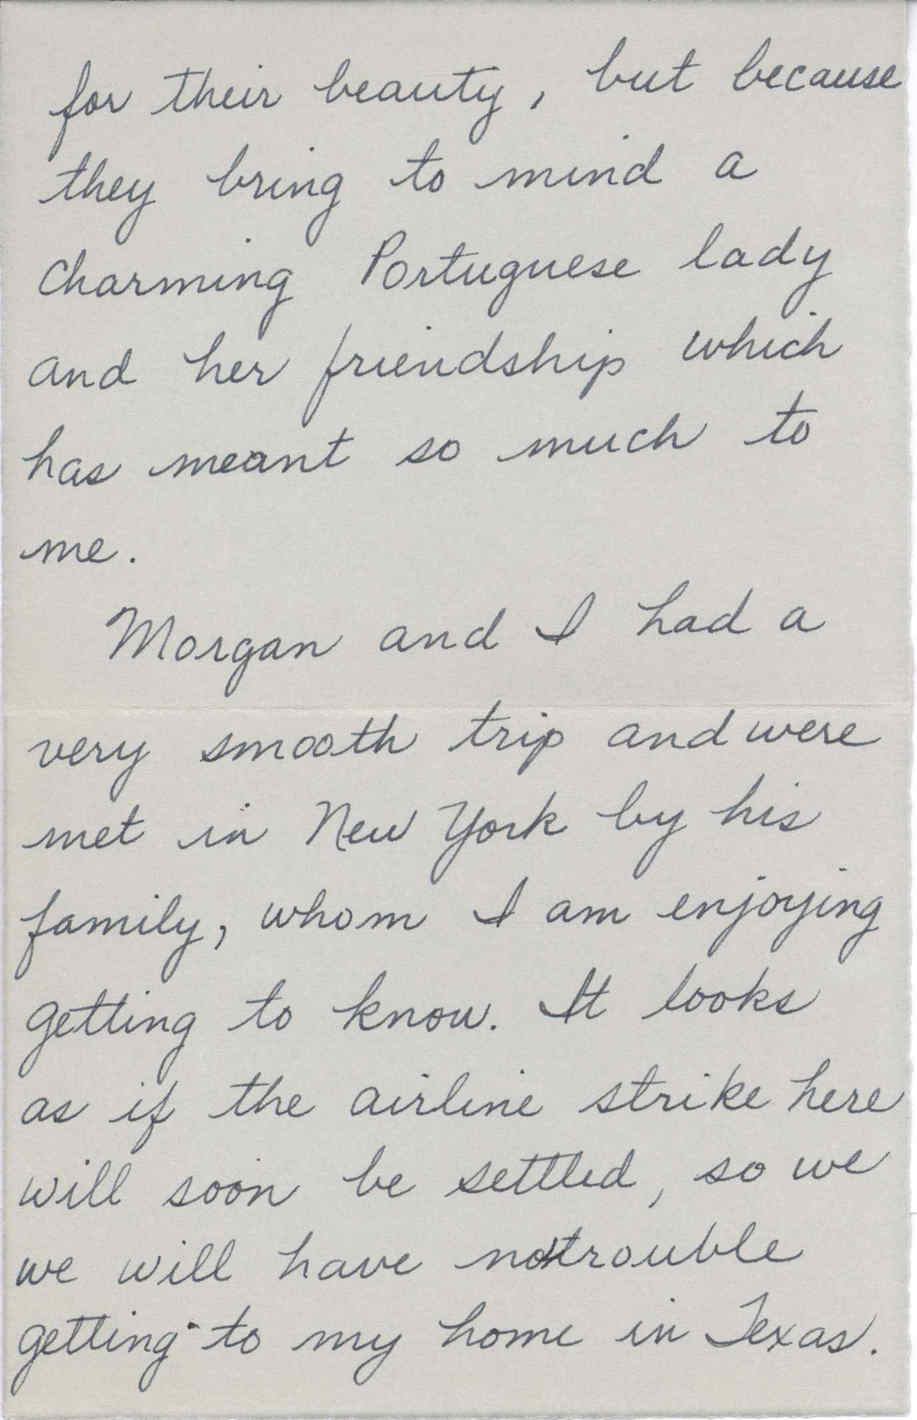 for their beauty, but because
they bring to mind a
charming Portuguese lady
and her friendship which
has meant so much to
me.
Morgan and I had a
very smooth trip and were
met in New York by his
family, whom I am enjoying
getting to know. It looks
as if the airline strike here
will soon be settled, so we
we will have no trouble
getting to my home in Texas.